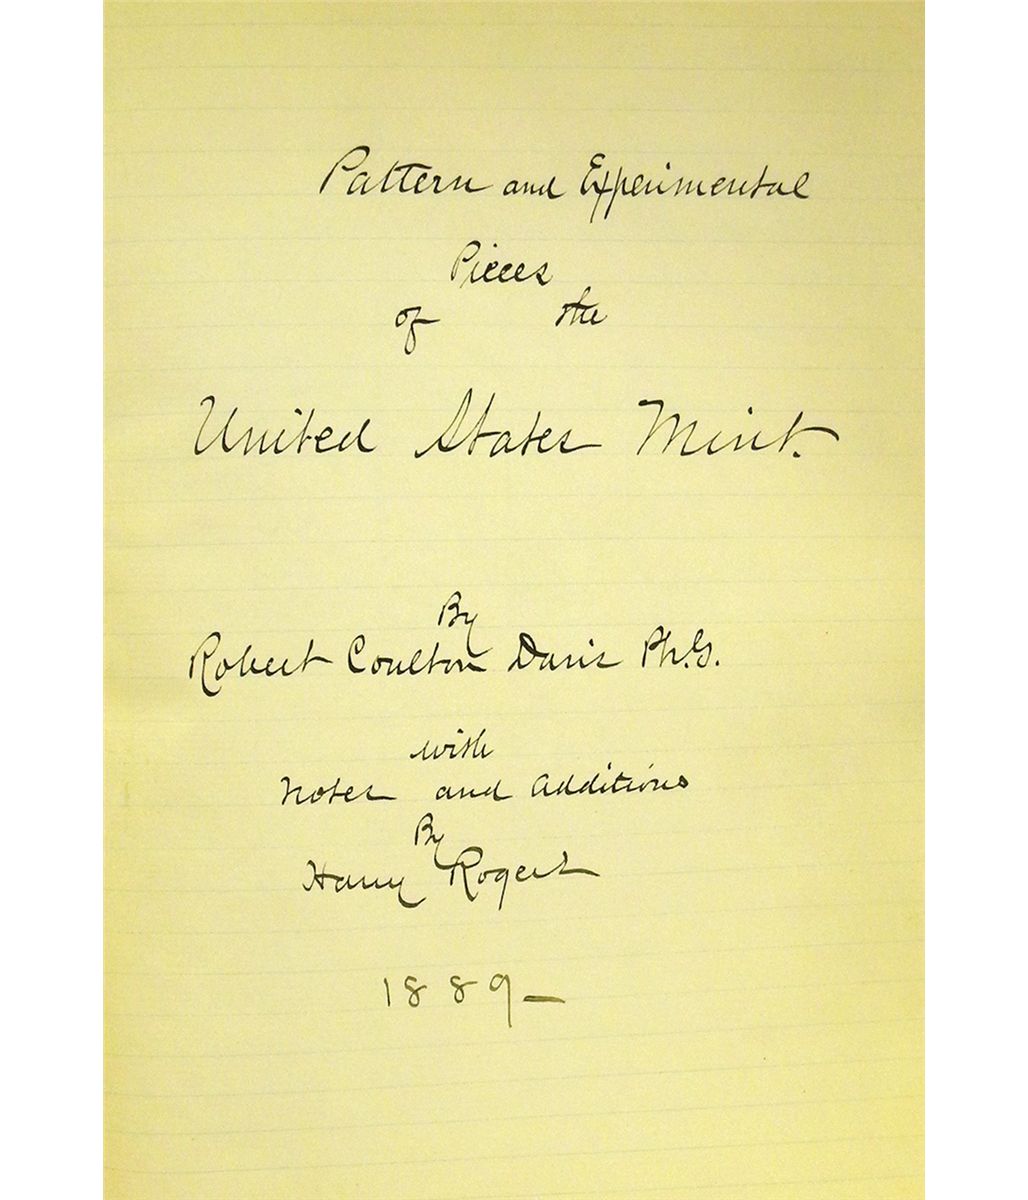 Pattern and Experimental
Pieces
of the
United States Mint.
By
Robert Coulton Davis Ph.G.
with
Notes and additions
By
Harry Rogers
1889_